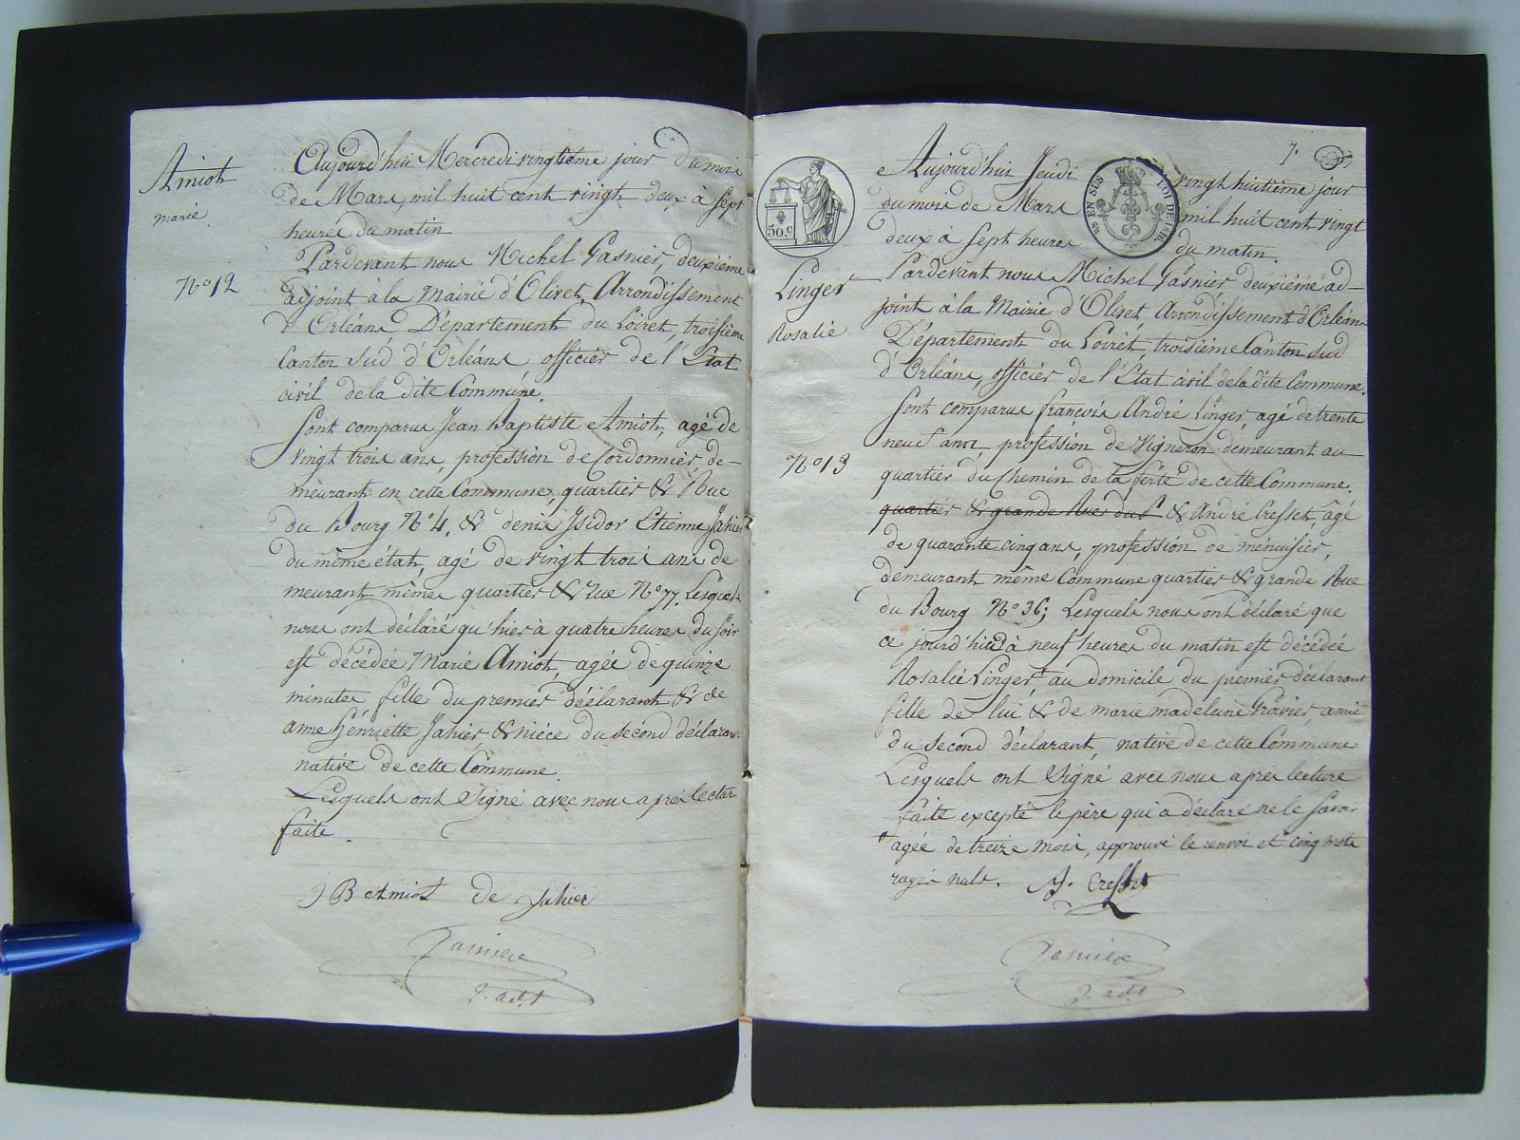 Amiot
marie
N.o 12
Aujourd'hui Mercredi vingtiéme jour du mois
de Mars, mil huit cent vingt deux à sept
heures du matin
Pardevant nous Michel Gasnier, deuxiéme
adjoint à la Mairie d'Olivet, Arrondissement
d'Orléans Département du Loiret, troisiéme
Canton sud d'Orléans officier de l'Etat
civil de la dite Commune.
Sont comparus Jean Baptiste Amiot, agé de
vingt trois ans, profession de Cordonnier, de-
meurant en cette Commune, quartier & Rue
du Bourg N.o 4, & denis Isidor Etienne Jahier
du même état, agé de vingt trois ans de
meurant même quartier & rue N.o 77. Lesquels
nous ont déclaré qu'hier à quatre heures du soir
est décédée Marie Amiot, agée de quinze
minutes, fille du premier déclarant & de
anne henriette Jahier & niéce du second déclarant
native de cette Commune.
Lesquels ont Signé avec nous aprés lecture
faite.
J B Amiot de Jahier
Gasnier
2. adt
7.
50.c
EN SUS
LOI DE 1816
Linger
Rosalie
N.o 13
Aujourd'hui Jeudi vingt huitiéme jour
du mois de Mars mil huit cent vingt
deux à sept heures du matin.
Pardevant nous Michel Gasnier deuxiéme ad-
joint à la Mairie d'Olivet Arrondissement d'Orléans
Département du Loiret, troisiéme Canton Sud
d'Orléans, officier de l'Etat civil de la dite Commune.
Sont comparus françois André Linger, agé de trente
neuf ans, profession de Vigneron demeurant au
quartier du Chemin de la ferté de cette Commune.
quartier & grande Rue du & André Cresset, agé
de quarante cinq ans, profession de ménuisier,
demeurant même Commune quartier & grande Rue
du Bourg N.o 36; Lesquels nous ont déclaré que
ce jourd'hui à neuf heures du matin est décédée
Rosalie Linger au domicile du premier déclarant
fille de lui & de marie madeleine Gravier, amie
du second déclarant, native de cette Commune
Lesquels ont Signé avec nous aprés lecture
faite excepté le père qui a déclaré ne le savoir
agée de treize mois, approuvé le renvoi et cinq mots
rayés nuls. A. Cresset
Gasnier
2. adt